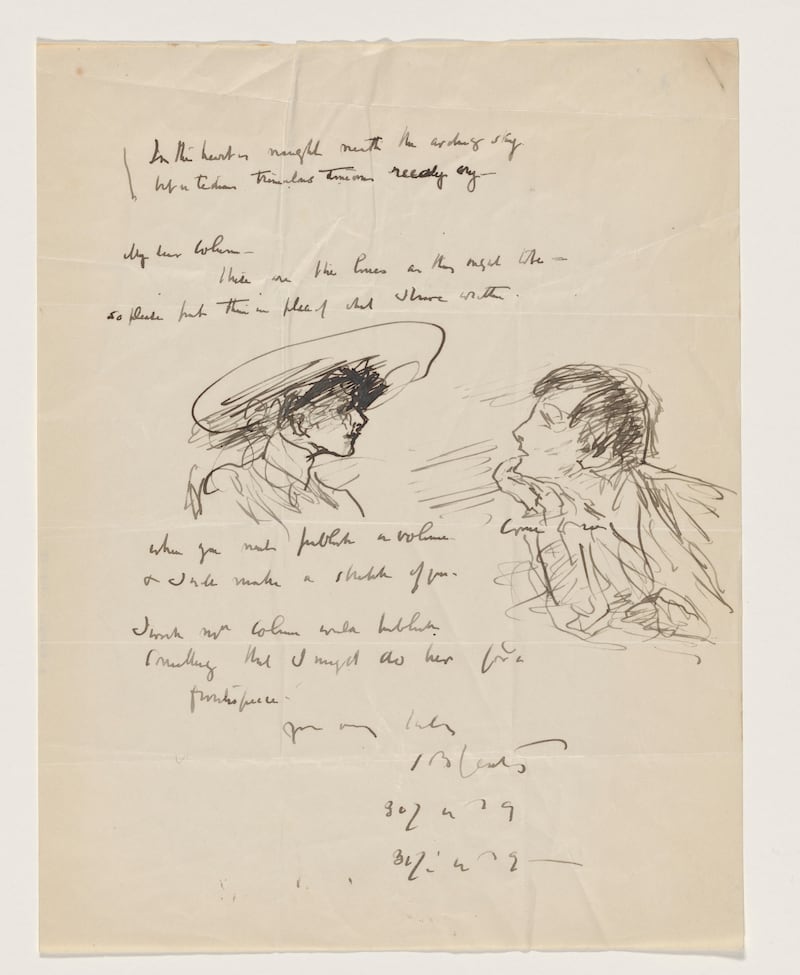 In the heart is naught neath the arching sky
but a tedious tremulous timorous reedy cry —
My dear Colum —
These are the lines as they ought to be —
so please put them in place of what I have written.
when you next publish a volume come to me
& I will make a sketch of you.
I wish Mrs Colum would publish
something that I might do her for a
frontispiece.
your very
J B Yeats
317 W 29
317 W 29 —